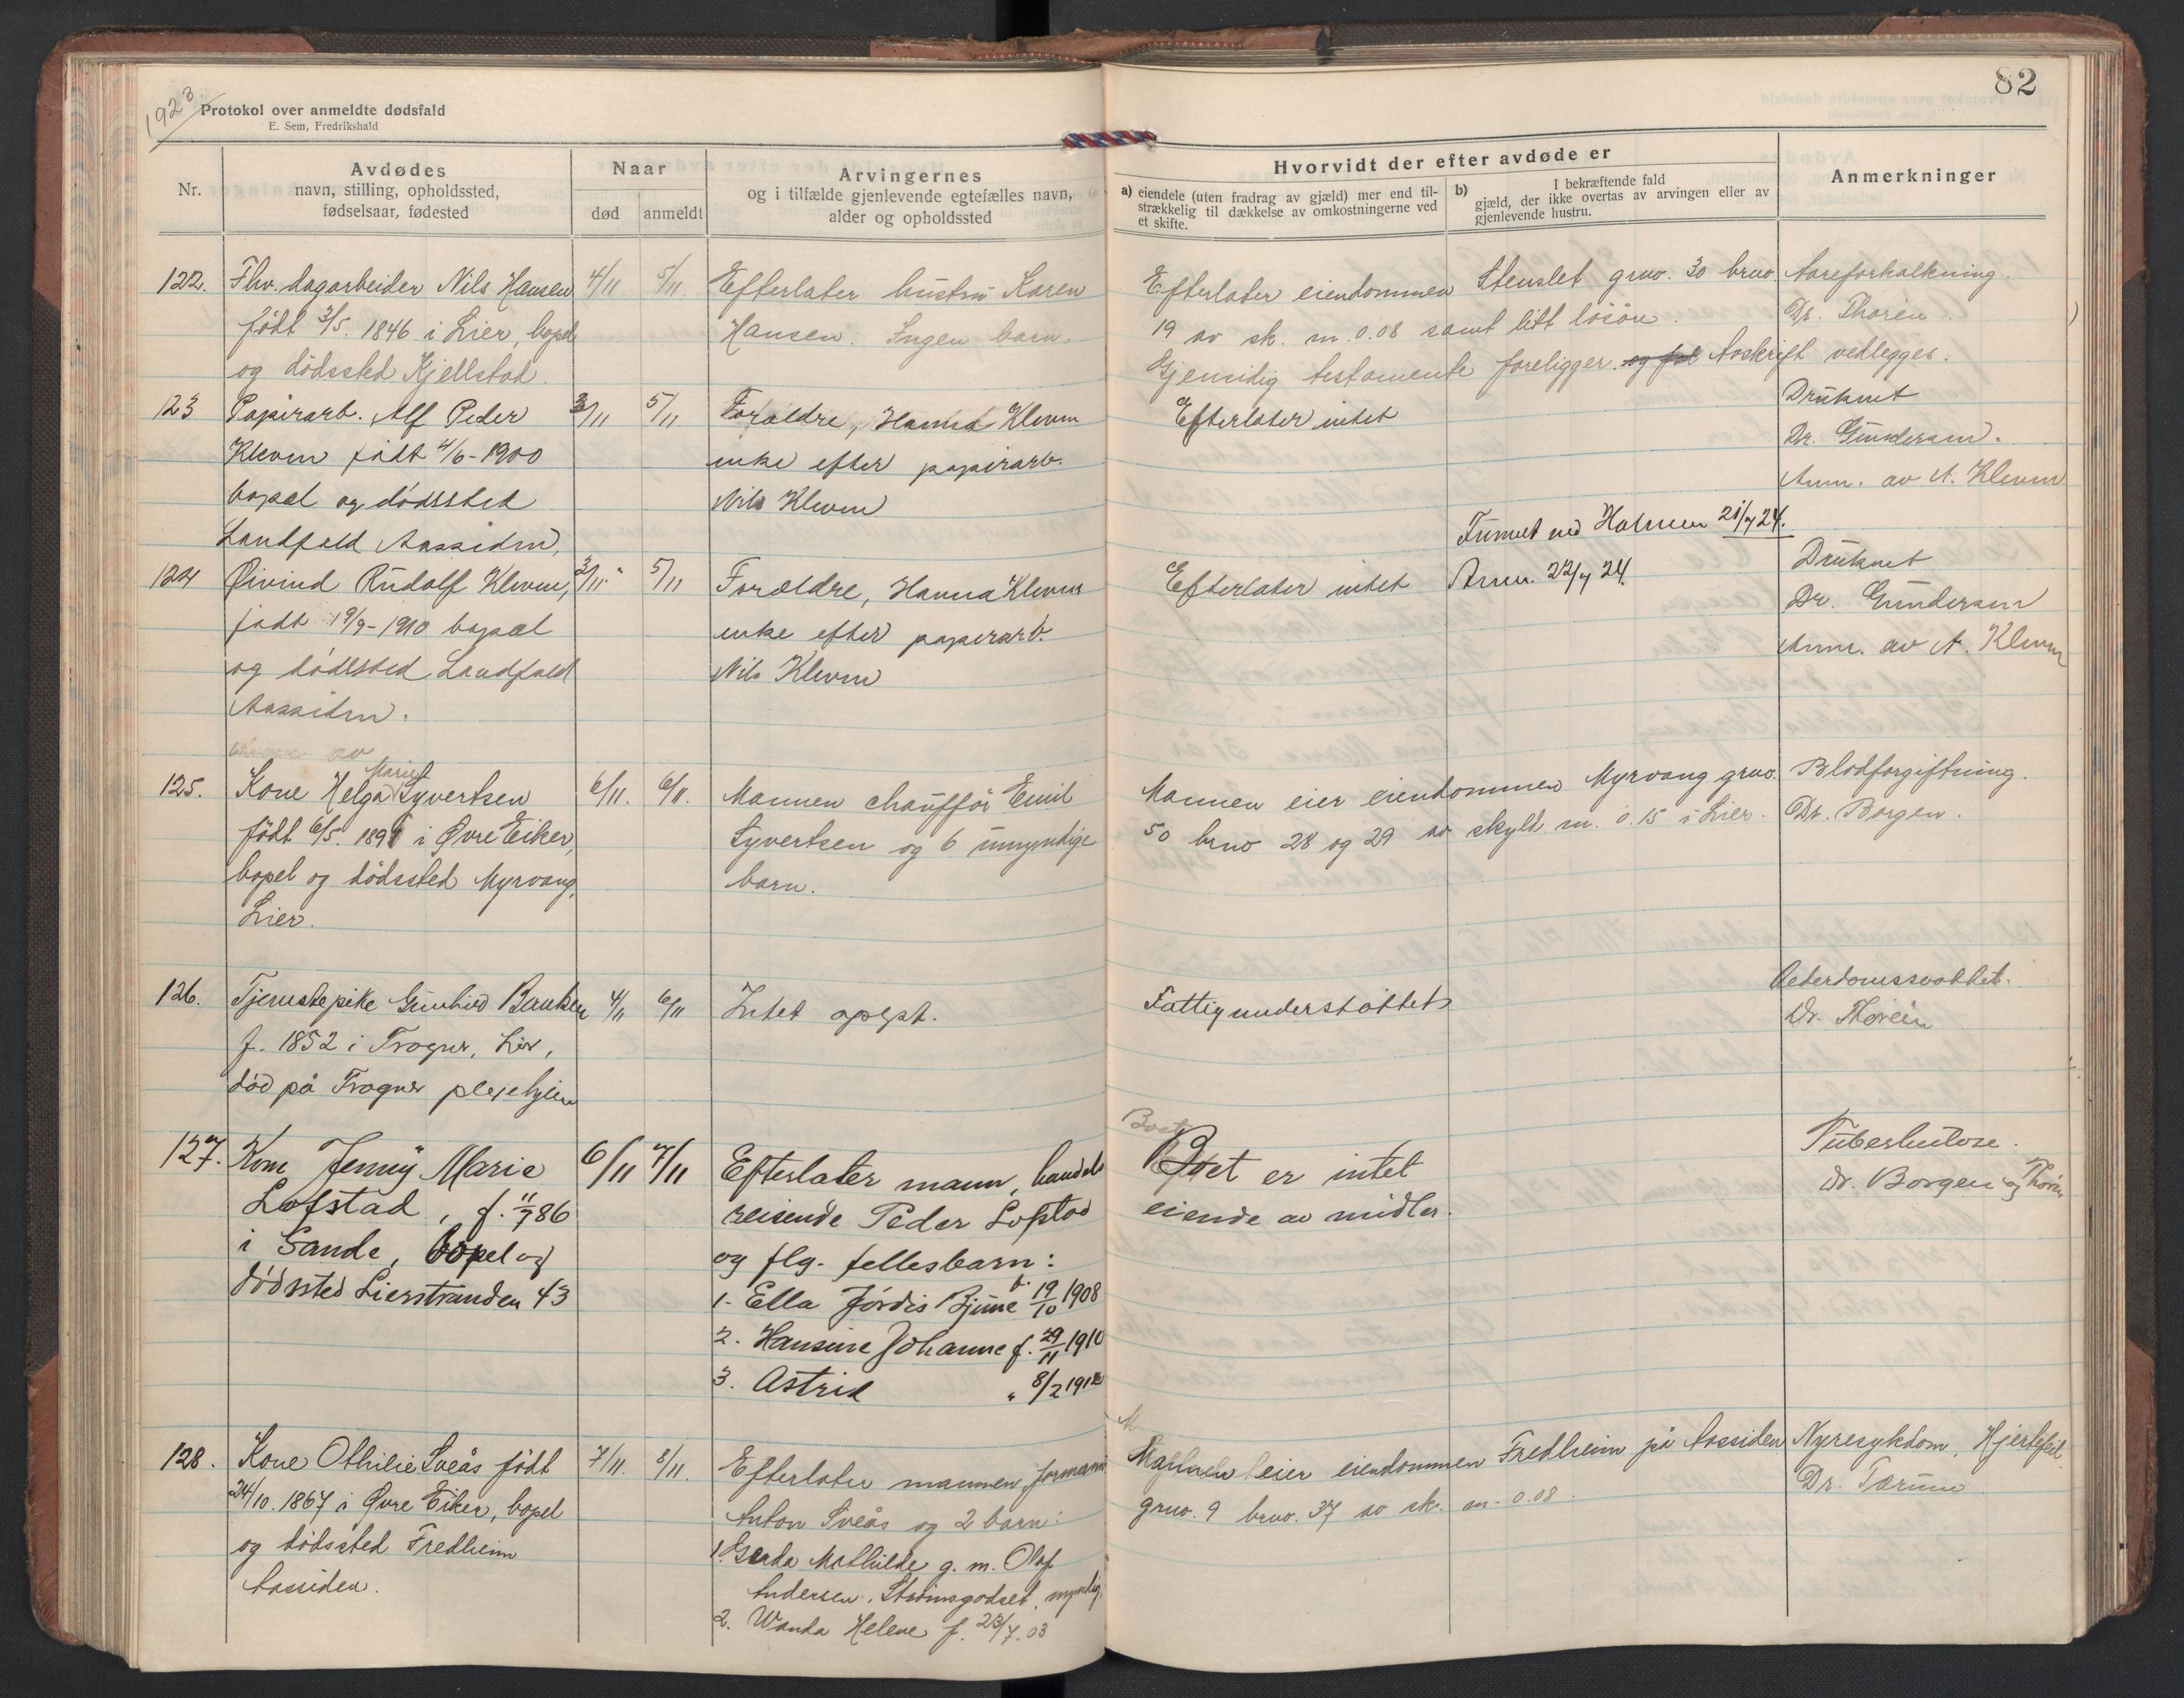 1923
82
Protokol over anmeldte dødsfald
E. Sem, Fredrikshald
Nr.
Avdødes
navn, stilling, opholdssted,
fødselsaar, fødested
Naar
død
anmeldt
Arvingernes
og i tilfælde gjenlevende egtefælles navn,
alder og opholdssted
Hvorvidt der efter avdøde er
a) eiendele (uten fradrag av gjæld) mer end til-
strækkelig til dækkelse av omkostningerne ved
et skifte.
b) I bekræftende fald
gjæld, der ikke overtas av arvingen eller av
gjenlevende hustru.
Anmerkninger
122.
Fhv. dagarbeider Nils Hansen
født 3/5. 1846 i Lier, bopel
og dödssted Kjellstad.
4/11
5/11
Efterlater hustru Karen
Hansen. Ingen barn.
Efterlater eiendommen Stenslet gruv. 30 bruv.
19 av sk. m. 0.08 samt litt lösöre.
Gjensidig testamente foreligger. og Avskrift vedlegges.
Aareforkalkning.
Dr. Thorén.
123
Papirarb. Alf Peder
Kleven født 4/6-1900
bopæl og dödssted
Landfald Aassiden,
3/11
5/11
Forældre, Hanna Kleven
enke efter papirarb.
Nils Kleven
Efterlater intet
Druknet
Dr. Gundersen.
Anm. av A. Kleven
Funnet ved Holmen 21/7 24.
Anm. 22/7 24.
124
Øivind Rudolf Kleven,
født 19/9-1910 bopæl
og dødssted Landfald
Aassiden.
3/11
5/11
Forældre, Hanna Kleven
enke efter papirarb.
Nils Kleven
Efterlater intet
Druknet
Dr. Gundersen
Anm. av A. Kleven
av
125.
Kone Helga Marie Syvertsen
født 6/5. 189 i Øvre Eiker,
bopel og dödssted Myrvang,
Lier.
6/11.
6/11.
Mannen chaufför Emil
Syvertsen og 6 umyndige
barn.
Mannen eier eiendommen Myrvang gruv.
50 bruv 28 og 29 av skyld m. 0.15 i Lier.
Blodforgiftning.
Dr. Borgen.
126.
Tjenestepike Gunhild Bentsen
f. 1852 i Tranger, Lier,
død på pleiehjem
4/11
6/11
Intet opgit.
Fattigunderstöttet
Alderdomssvakhet.
Dr. Thorén
127.
Kone Jenny Marie
Lofstad, f. 11/7 86
i Sande, bopel og
dödssted Lierstranden 43
6/11
7/11
Efterlater mann, handels
reisende Peder Lofstad
og flg. fellesbarn:
1. Ella Jórdis Bjune f. 19/10 1908
2. Hansine Johanne f. 29/11 1910
3. Astrid " 8/2 191
Boet
Boet er intet
eiende av midler.
Tuberkulose.
Dr. Borgen og Thorén
128.
Kone Othilie Sveås født
24/10. 1867 i Øvre Eiker, bopel
og dödssted Fredheim
Aassiden.
7/11.
8/11.
Efterlater mannen formann
Anton Sveås og 2 barn:
1. Gerda Mathilde g. m. Olaf
Andersen, Strömsgodset, myndig.
2. Wanda Helene f. 23/7. 03
M
Mannen eier eiendommen Fredheim på Aassiden
gruv. 9 bruv. 37 av sk. m. 0.08.
Nyresykdom, Hjertefeil.
Dr. Tærum